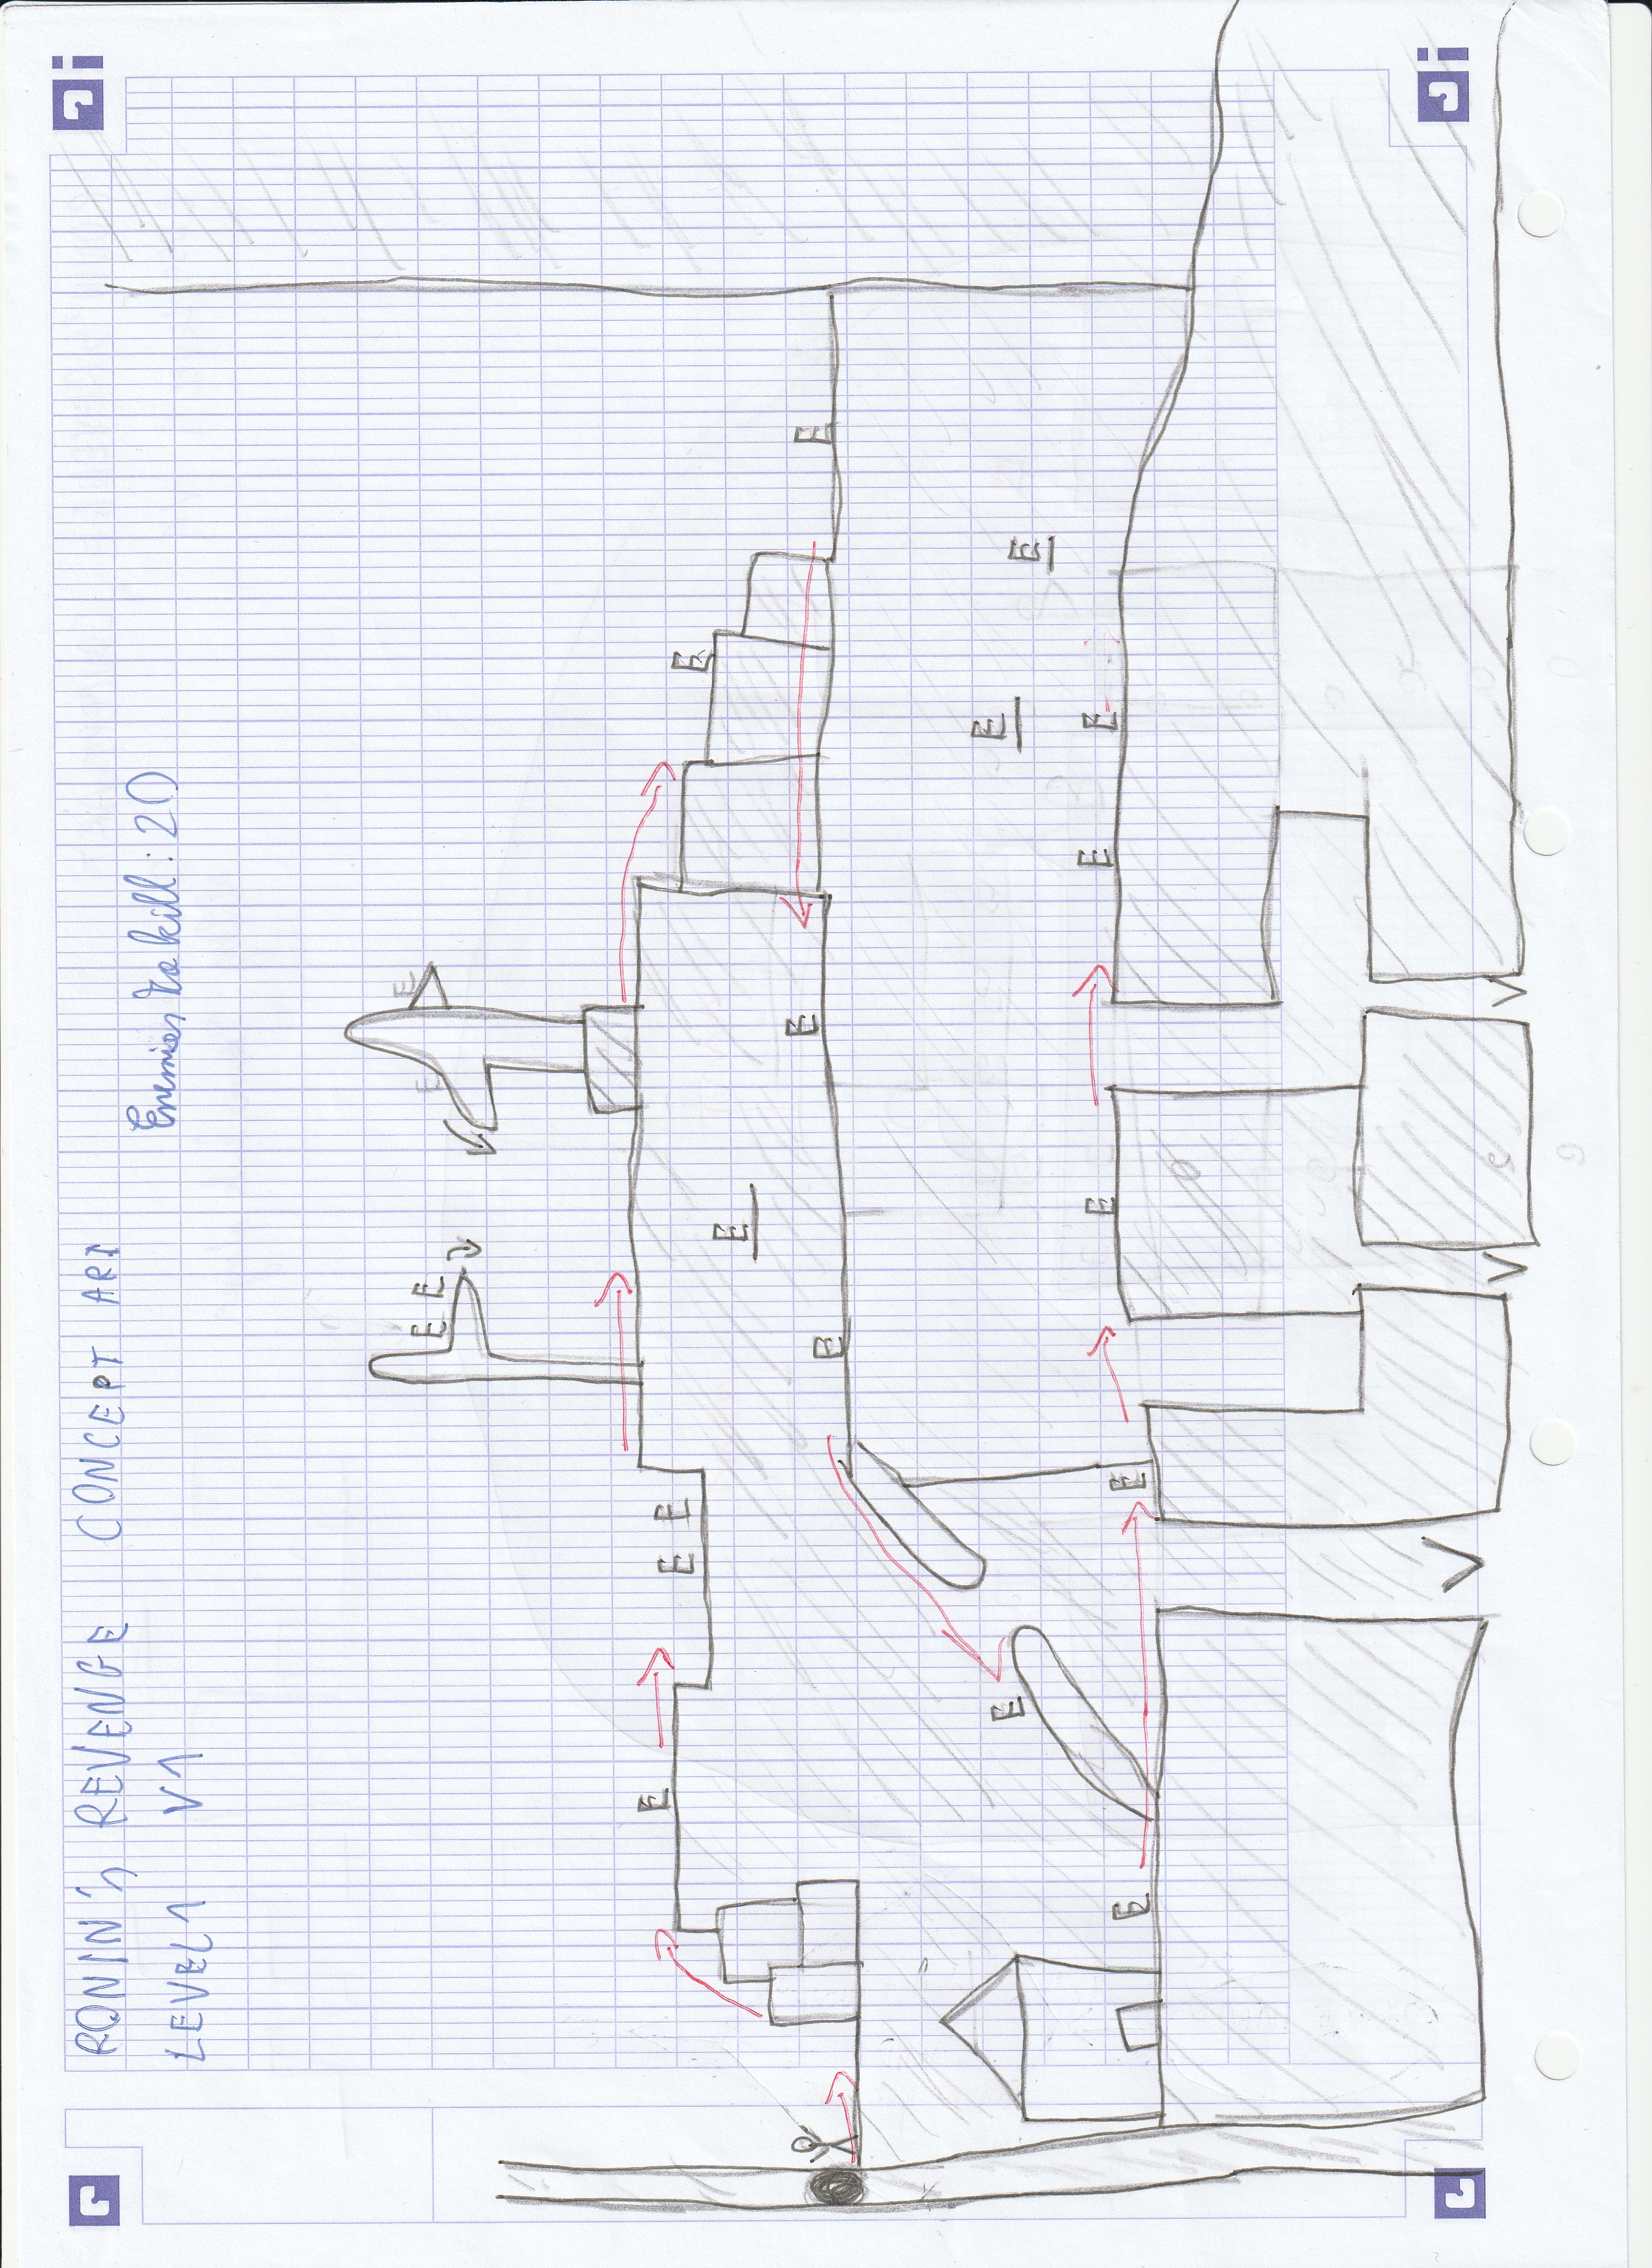 RONIN's REVENGE CONCEPT ART
LEVEL 1 V1
Enemies to kill: 20
E E E E
E E E E
E
E E E
E E E
E E E E E